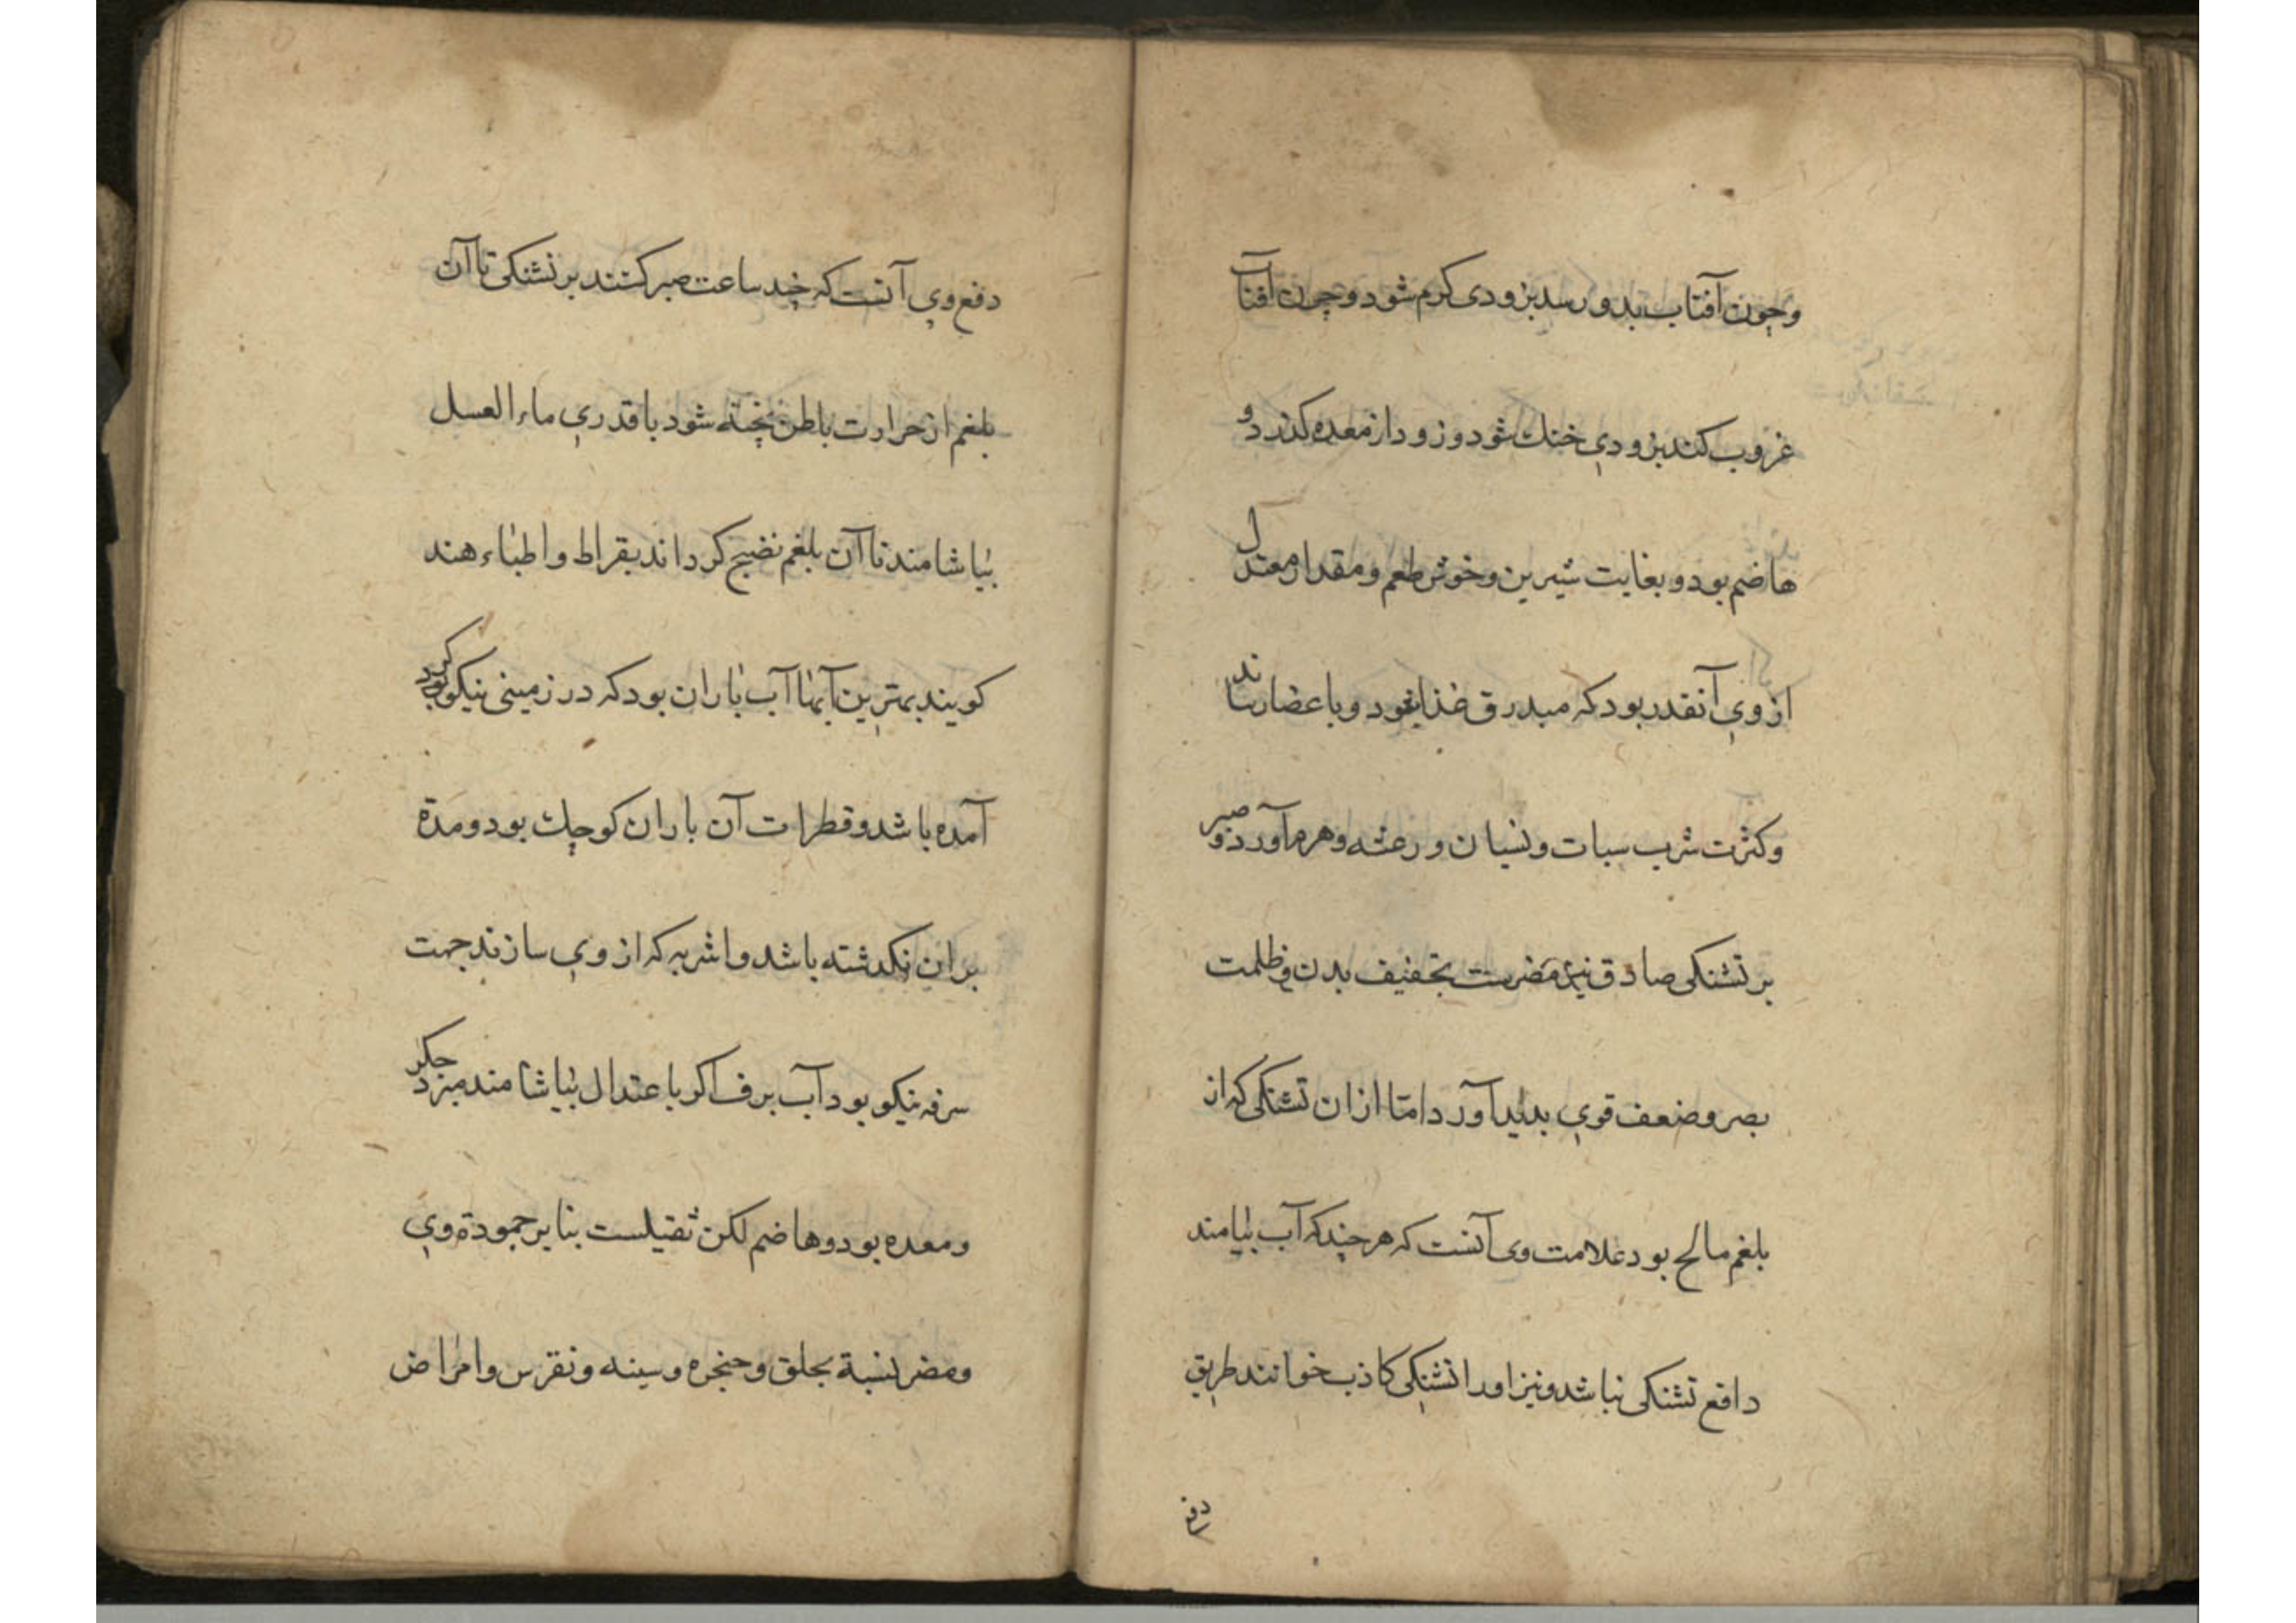 وچون آفتاب بدو رسد بزودی کرم شود وچون آفتاب
غروب کند بزودي خنك شود وزود از معده کذرد و
هاضم بود و بغایت شیرین وخوش طعم ومقدار معتدل
از وي آنقدر بود که مبدرق غذا بود و باعضا رساند
وکثرت شرب سبات ونسیان و رعشه وهرم آورد و صبر
بر تشنکی صادق نیز مضرست تجفیف بدن وظلمت
بصر وضعف قوي بدید آورد امتا ازان تشنکی که از
بلغم مالح بود علامت وی آنست که هر چند که آب بیامند
دافع تشنکی نباشد ونیز اورا تشنکي کاذب خوانند طریق
دفع
دفع وي آنست که چند ساعت صبر کنند بر تشنکی تا آن
بلغم از حرارت باطن پخته شود با قدري ماء العسل
بیاشامند تا آن بلغم نضیج کرداند بقراط و اطباء هند
کویند بهترین آبها آب باران بود که در زمینی نیکو کرد
آمده باشد وقطرات آن باران کوچك بود ومدة
بران نکذشته باشد واشربه که از وي سازند جهت
سرفه نیکو بود آب برف اکر باعتدال بیاشامند مبرد جکر
ومعده بود وهاضم لکن ثقیلست بنا بر جمودة وي
ومضر نسبة بحلق وحنجره وسینه ونقرس وامراض